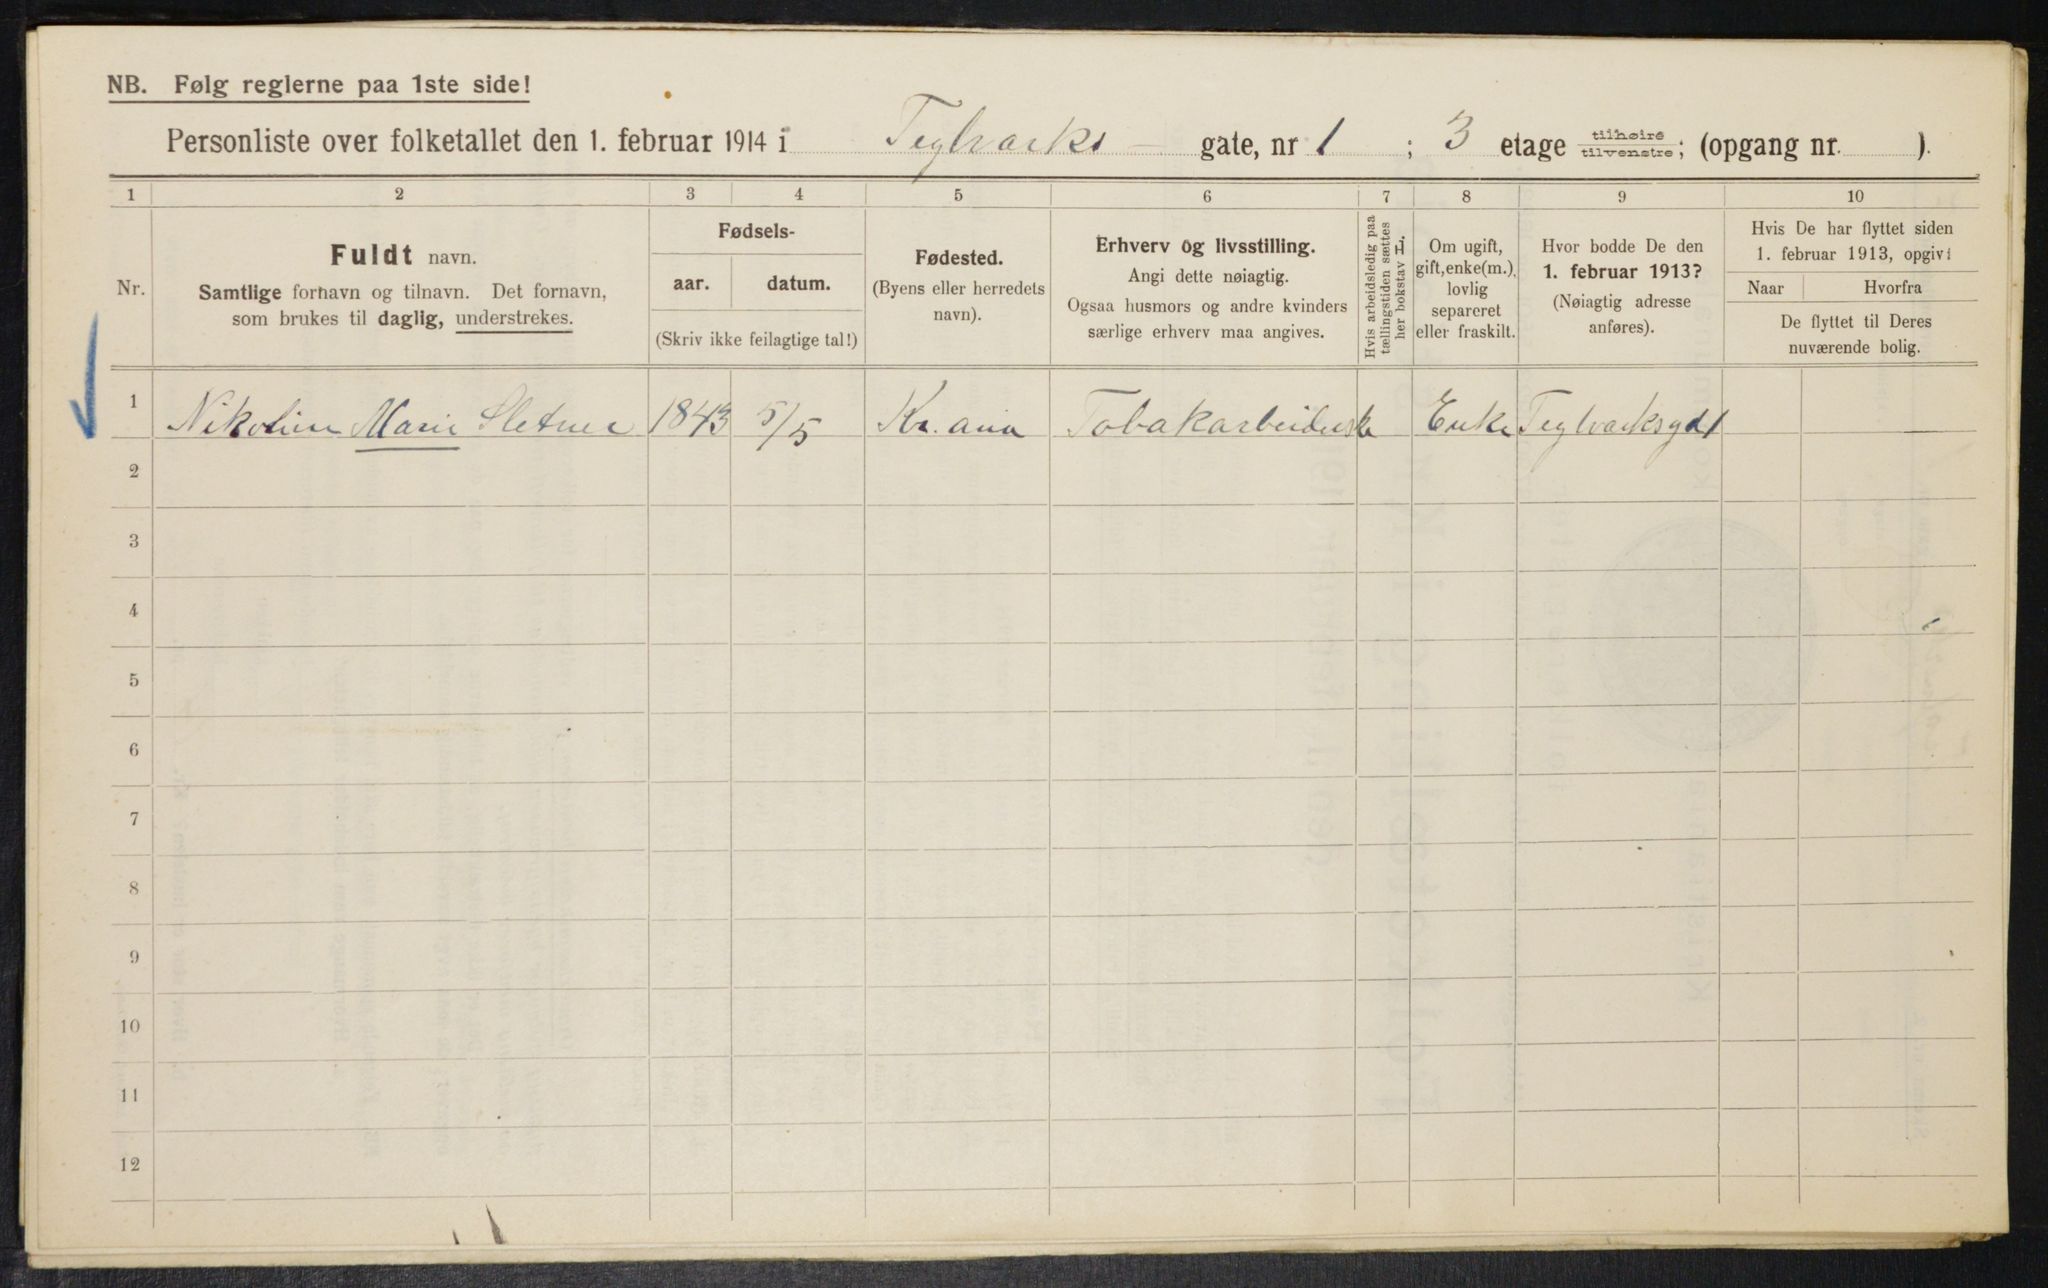 NB. Følg reglerne paa 1ste side!
Personliste over folketallet den 1. februar 1914 i Teglværks gate, nr 1 ; 3 etage tilhøire tilvenstre; (opgang nr. ).
1 2 3 4 5 6 7 8 9 10
Nr.
Fuldt navn.
Samtlige fornavn og tilnavn. Det fornavn,
som brukes til daglig, understrekes.
Fødsels-
aar. datum.
(Skriv ikke feilagtige tal!)
Fødested.
(Byens eller herredets
navn).
Erhverv og livsstilling.
Angi dette nøiagtig.
Ogsaa husmors og andre kvinders
særlige erhverv maa angives.
Hvis arbeidsledig paa
tællingstiden sættes
her bokstav L.
Om ugift,
gift, enke(m.),
lovlig
separeret
eller fraskilt.
Hvor bodde De den
1. februar 1913?
(Nøiagtig adresse
anføres).
Hvis De har flyttet siden
1. februar 1913, opgiv:
Naar Hvorfra
De flyttet til Deres
nuværende bolig.
1 Nikoline Marie Sletner 1843 5/5 Kr.ania Tobakarbeiderske Enke Teglværksgd 1
2
3
4
5
6
7
8
9
10
11
12